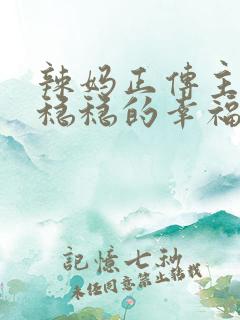 辣妈正传主
稳稳的幸福
記憶七秒
未经同意禁止转载